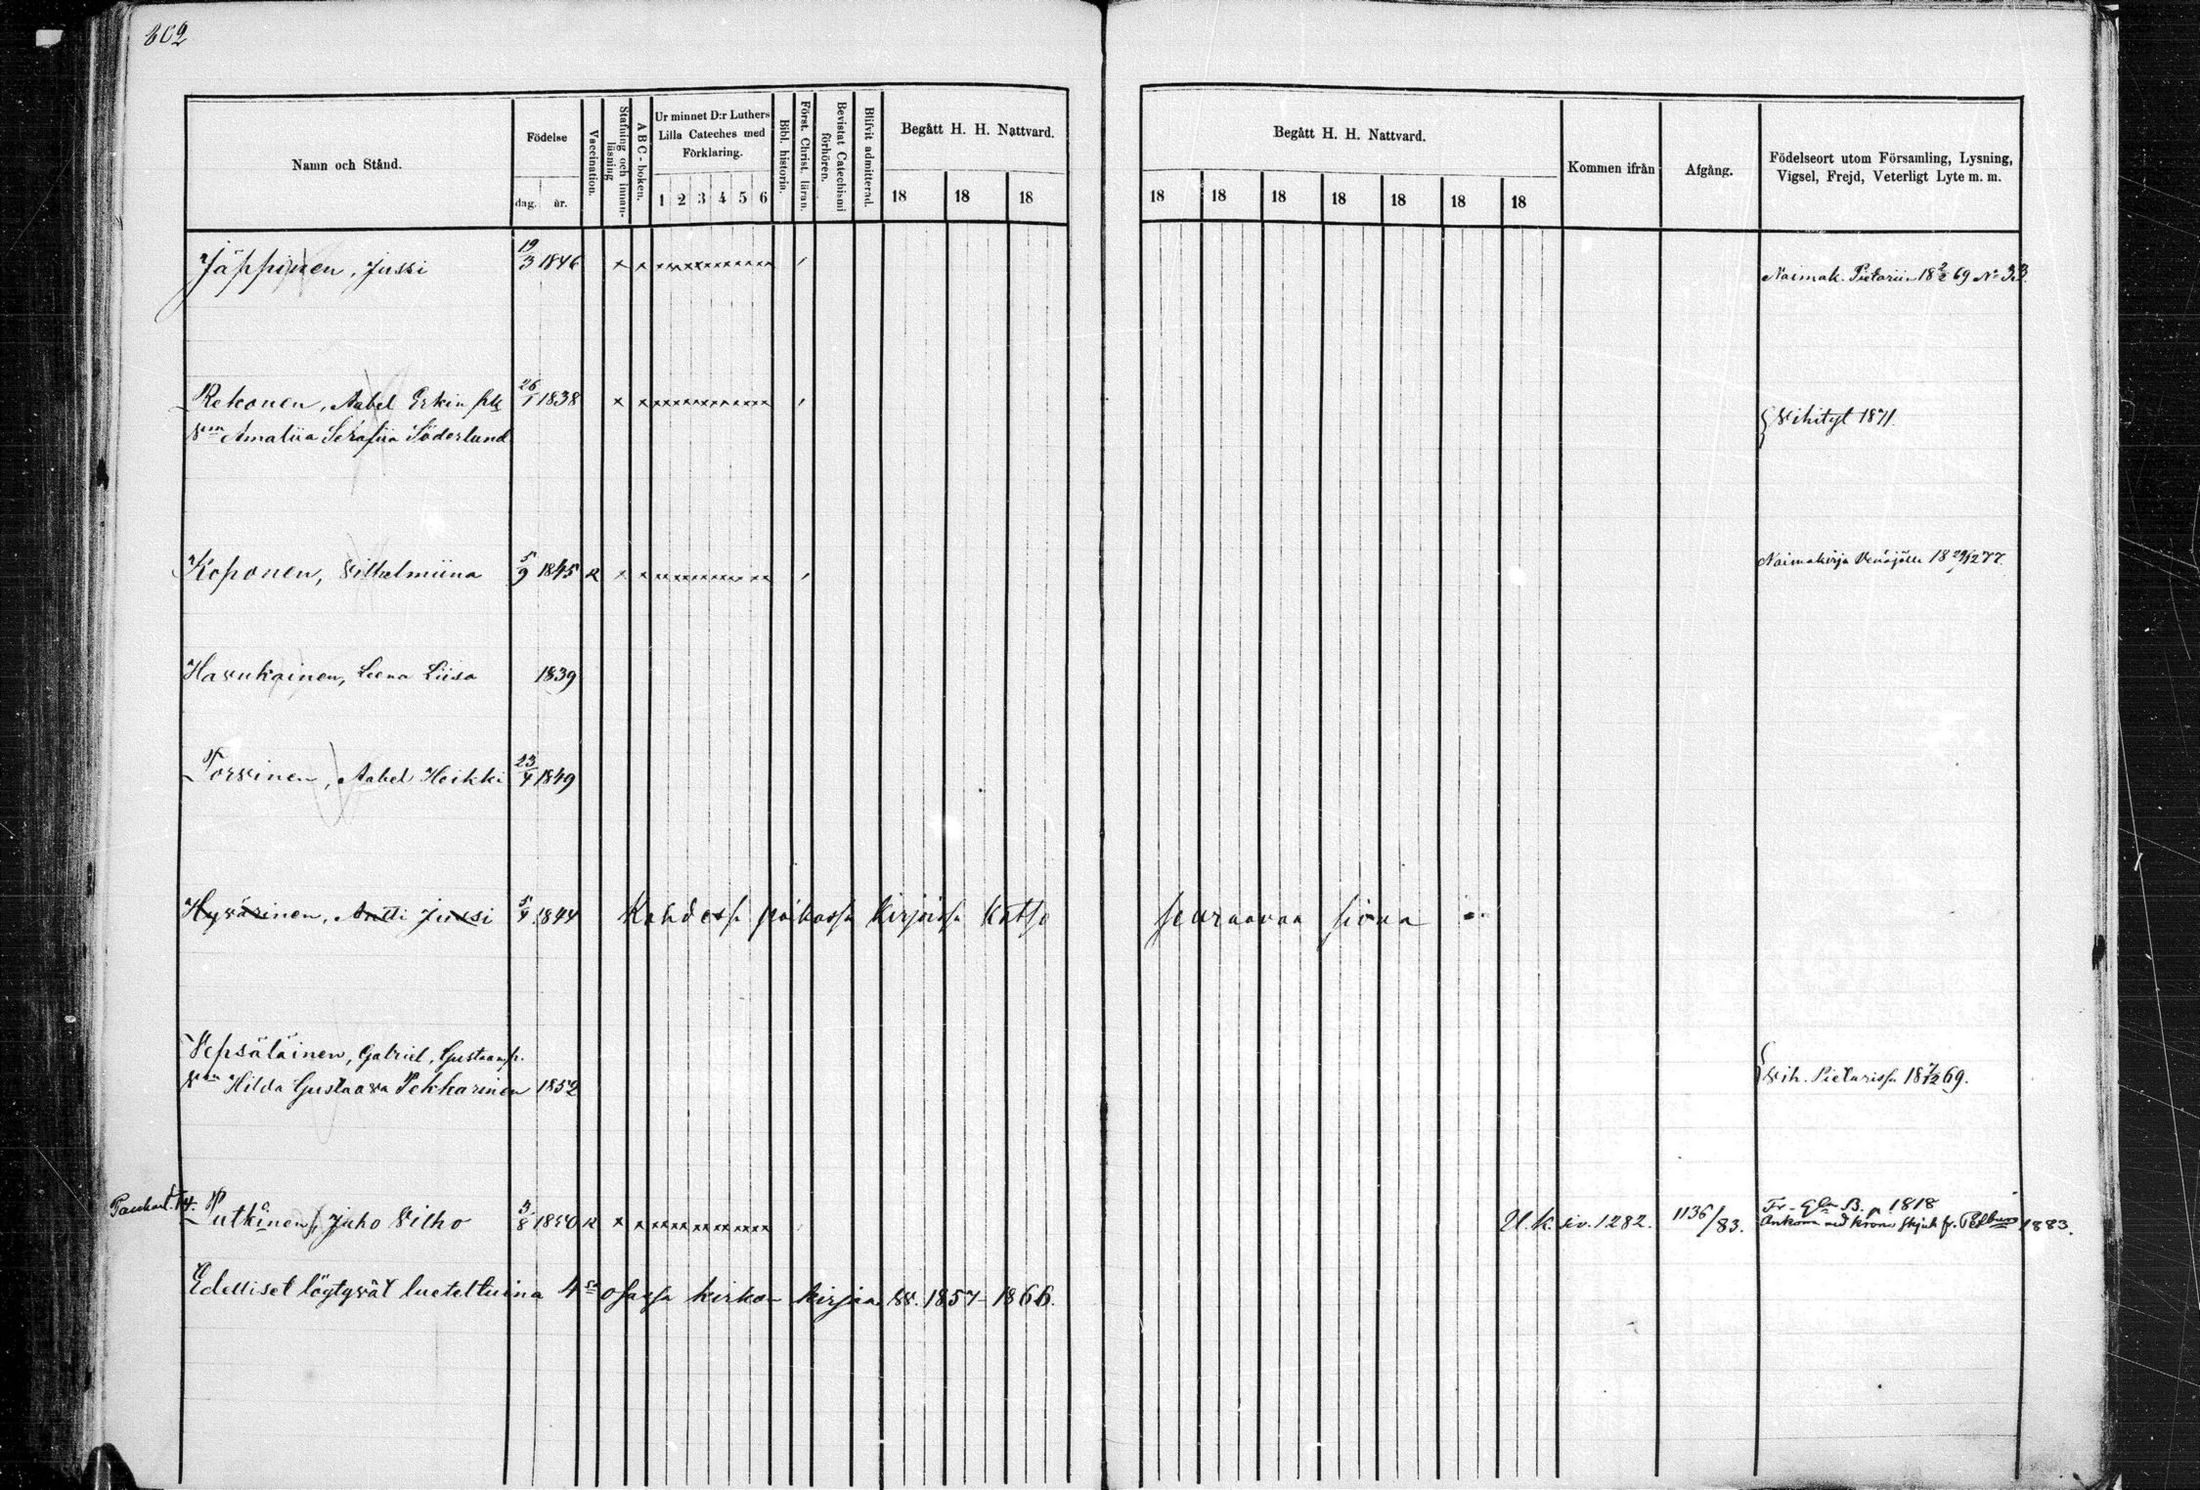 802
Namn och Stånd.
Födelse
dag. år.
Vaccination.
Stafning och innanläsning
ABC-boken.
Ur minnet D:r Luthers Lilla Cateches med Förklaring.
1 2 3 4 5 6
Bibl. historia.
Först. Christ. läran.
Bevistat Catechismi förhören.
Blifvit admitterad.
Begått H. H. Nattvard.
18 18 18
Begått H. H. Nattvard.
18 18 18 18 18 18 18
Kommen ifrån
Afgång.
Födelseort utom Församling, Lysning, Vigsel, Frejd, Veterligt Lyte m. m.
Jäppinen, Jussi 19/3 1846 Naimak. Pietariin 18 2/2 69 No 33.
Rekonen, Aabel Erkin 26/1 1838
Vm Amaliia Serafiia Söderlund Wihityt 1871.
Koponen, Vilhelmiina 5/9 1845 R Naimakirja Venäjälle 18 29/12 77.
Havukainen, Leena Liisa 1839
Torvinen, Aabel Heikki 23/4 1849
Hyvärinen, Antti Jussi 5/4 1844 Kahdessa paikassa kirjoissa katso seuraavaa sivua
Vepsäläinen, Gabriel, Gustaavp.
Vm Hilda Gustaava Pekkarinen 1852 Vih. Pietarissa 18 7/12 69.
Putkinen, Juho Vilho 3/8 1850 R U. k. siv. 1282. 1136/83. Fr. Gla B. p 1818
Ankom med krono skjuts fr. Petburg 1883.
Edelliset löytyvät lueteltuina 4sä osassa kirkon kirjaa VV. 1857-1866.